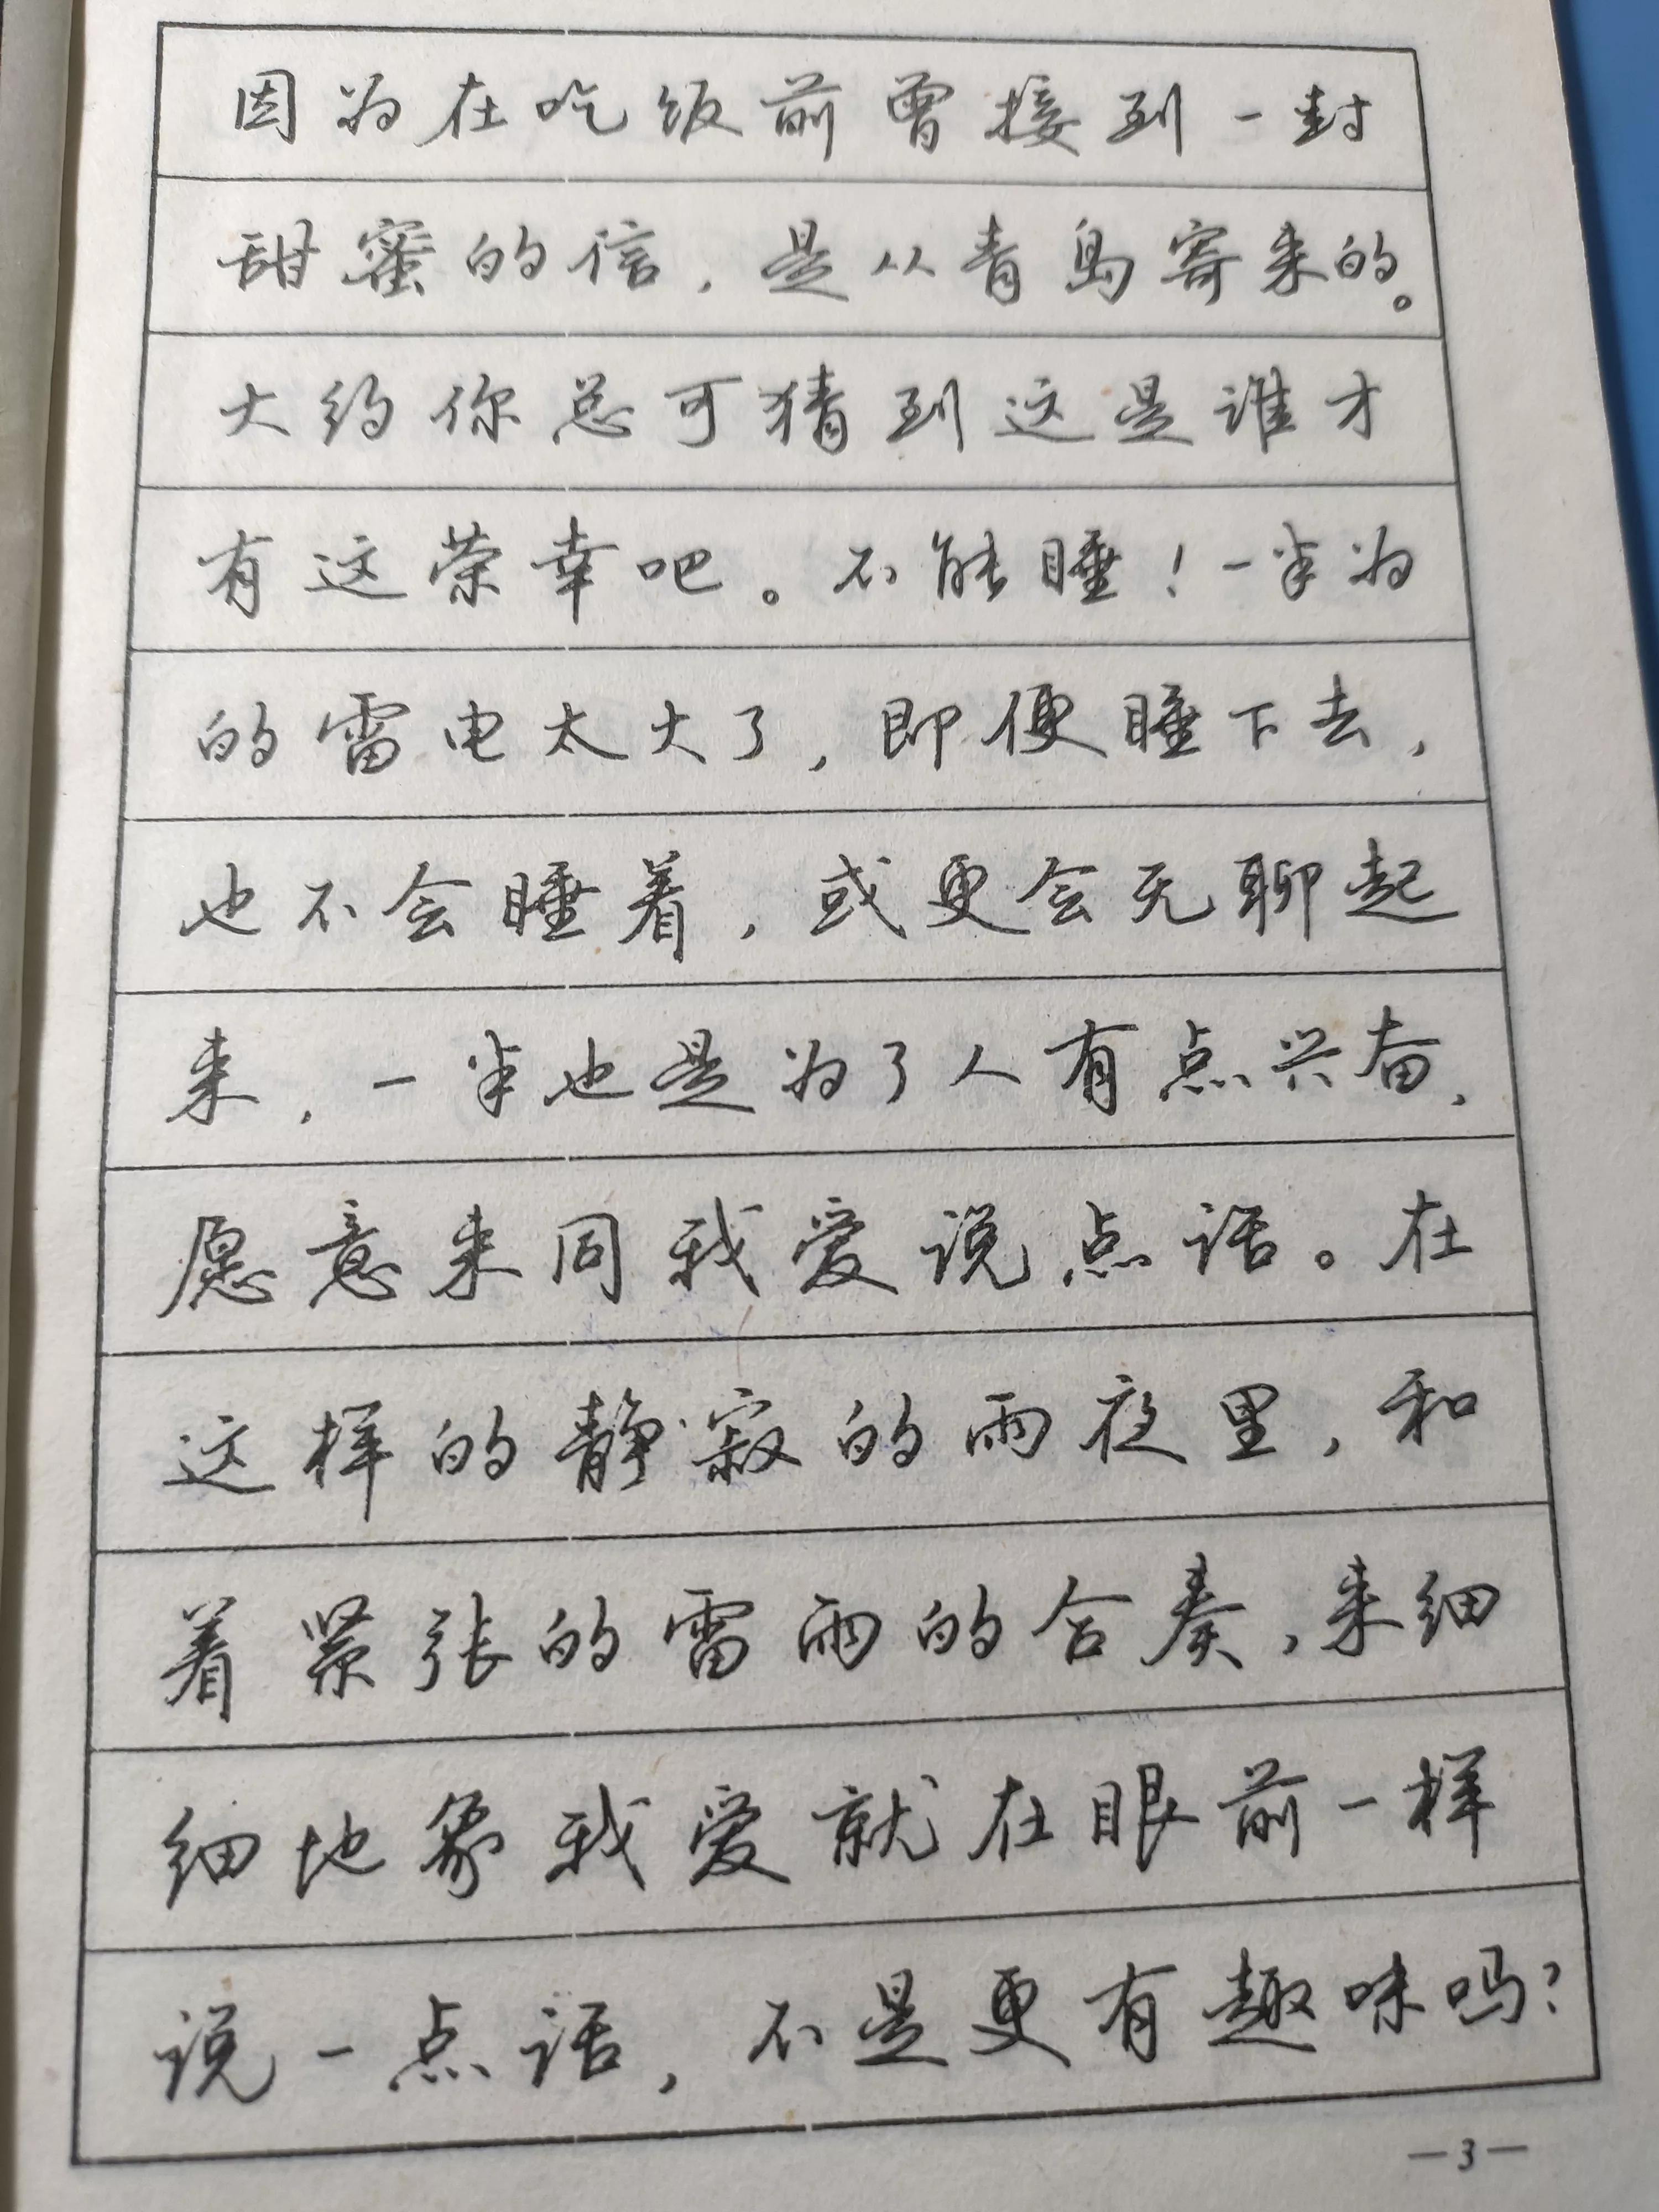 因为在吃饭前曾接到一封
甜蜜的信，是从青岛寄来的。
大约你总可猜到这是谁才
有这荣幸吧。不能睡！一半为
的雷电太大了，即便睡下去，
也不会睡着，或更会无聊起
来，一半也是为了人有点兴奋，
愿意来同我爱说点话。在
这样的静寂的雨夜里，和
着紧张的雷雨的合奏，来细
细地象我爱就在眼前一样
说一点话，不是更有趣味吗？
—3—